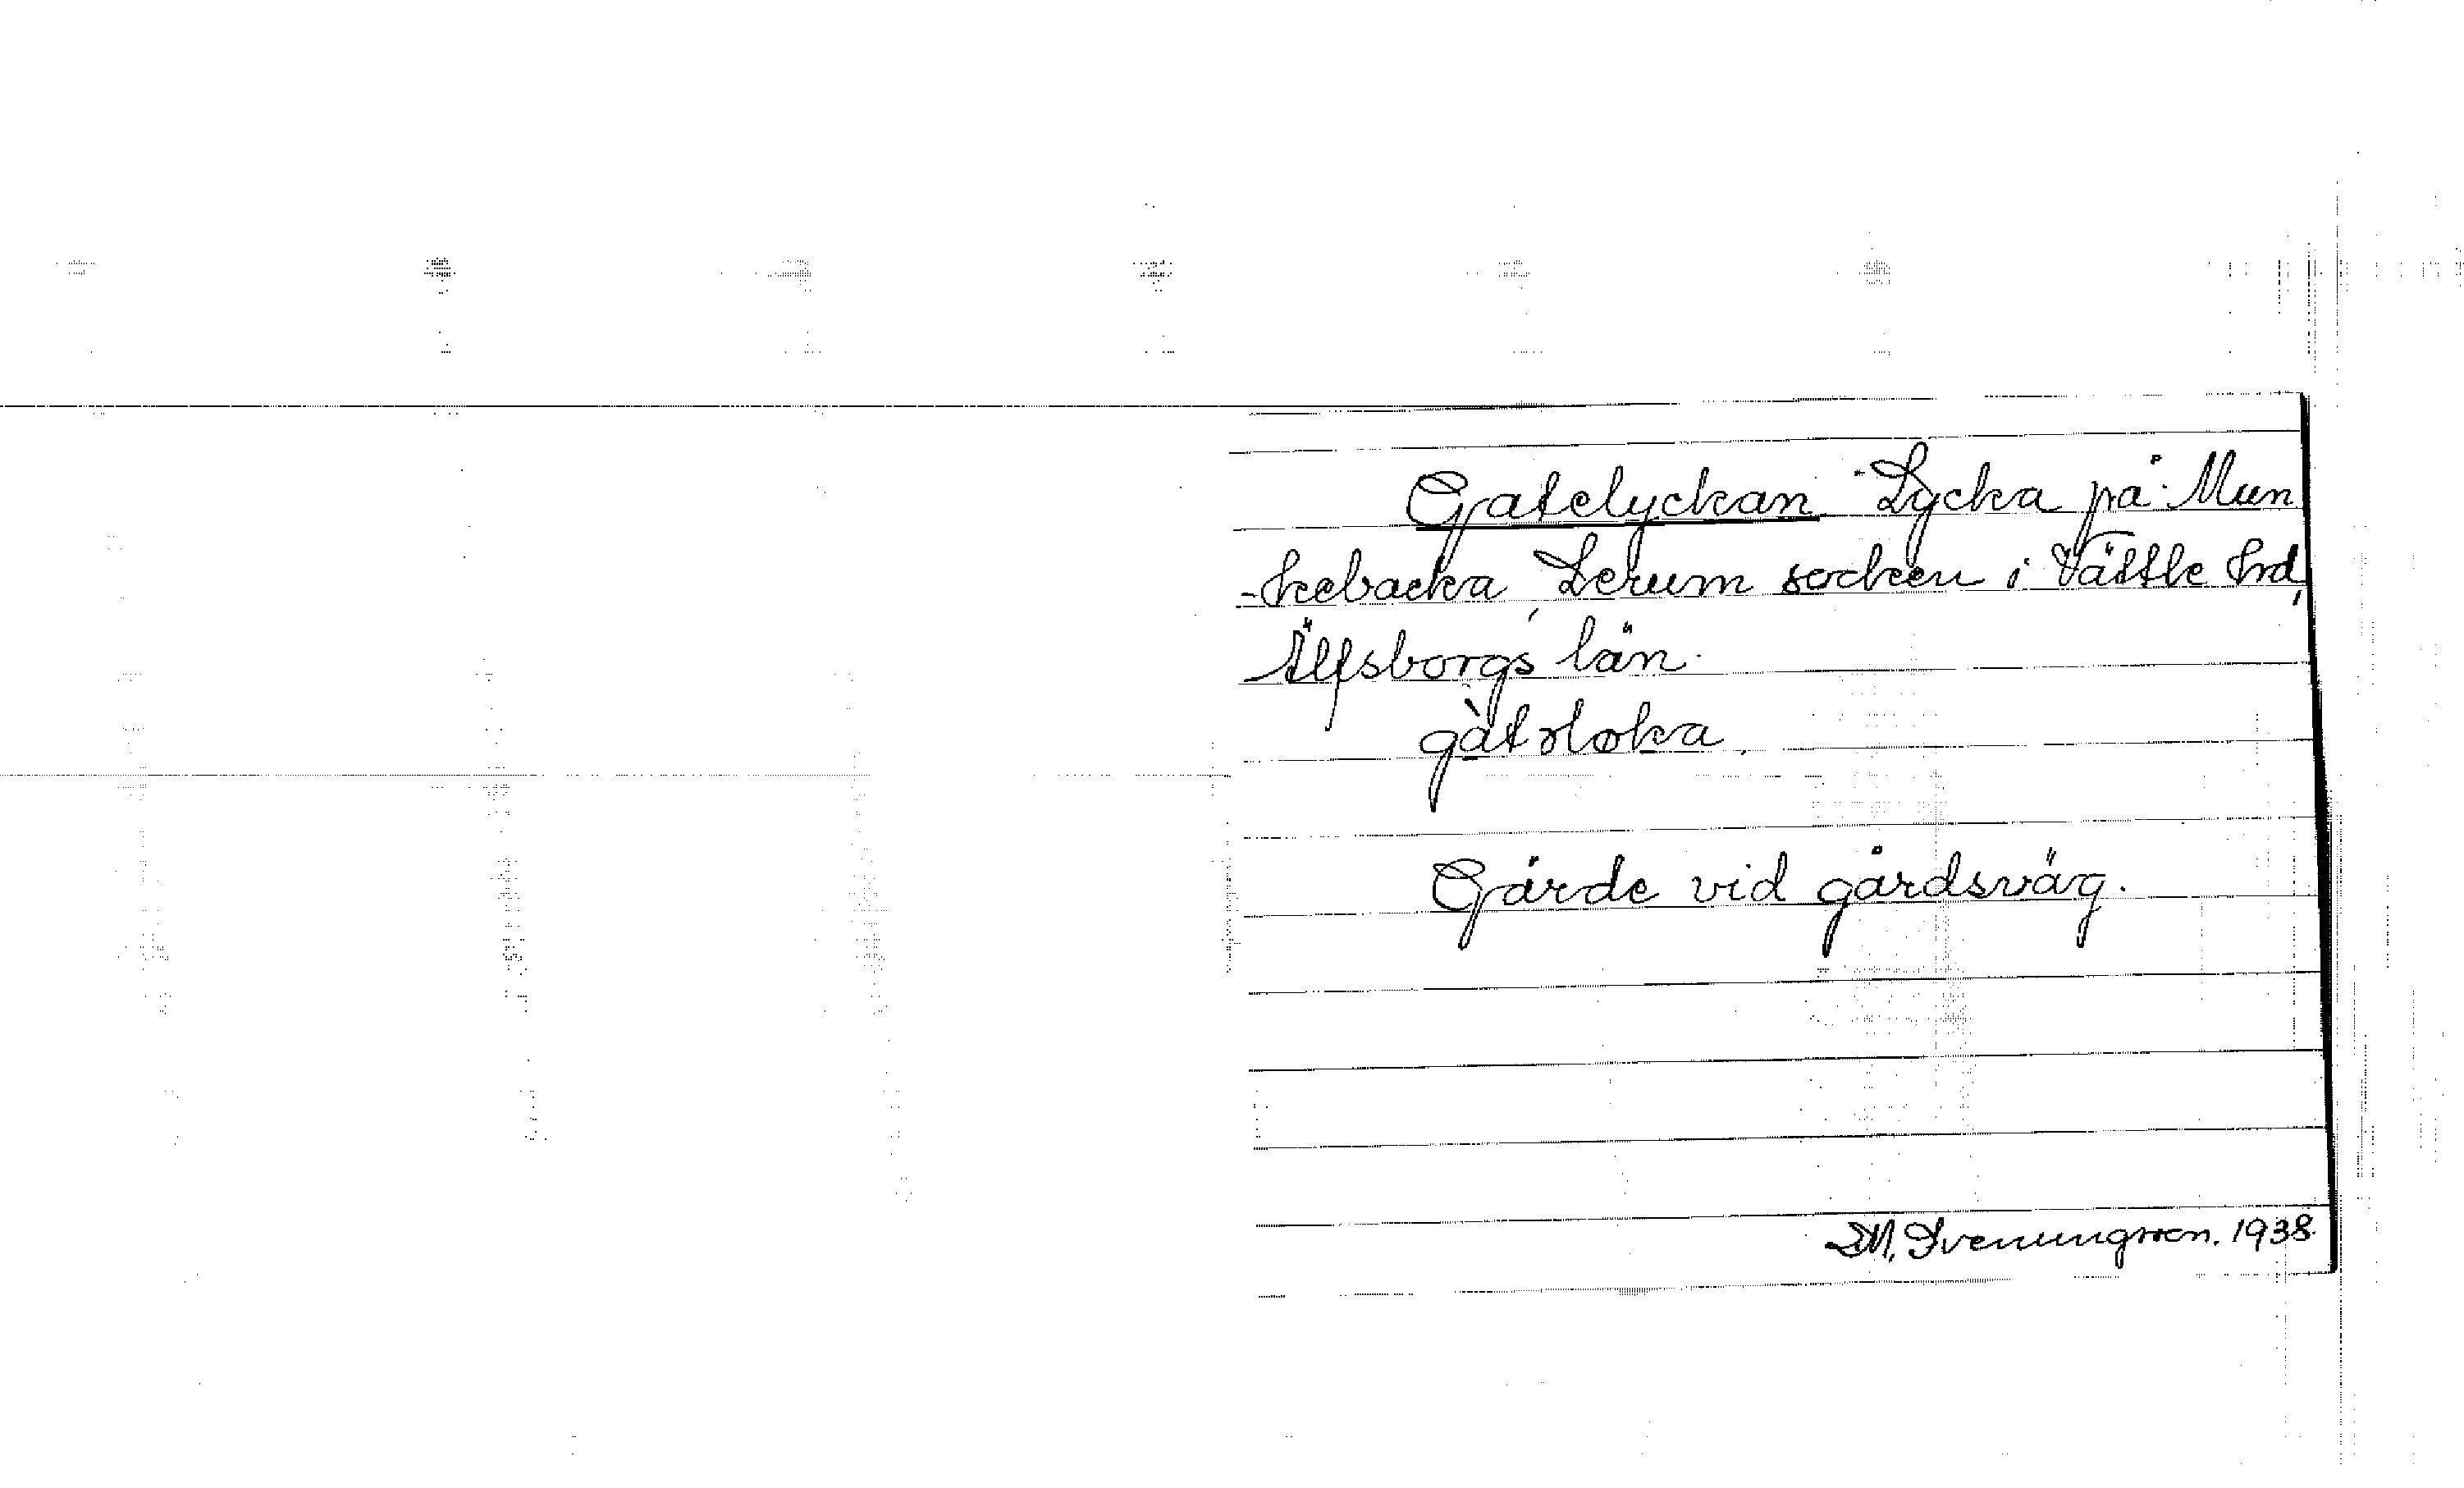 Gatelyckan Lycka på Mun
-kebacka, Lerum socken i Vättle hrd,
Älfsborgs län.
gàtəløka.
Gärde vid gårdsväg.
D.M. Svenungsson. 1938.